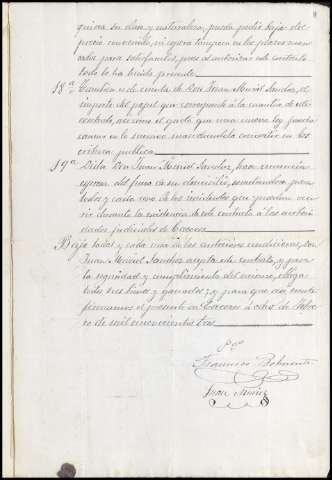 quiera su clase y naturaleza, pueda pedir baja del
precio convenido, ni espera tampoco en los plazos marca
dos para satisfacerlos, pues al autorizar este contrato
todo lo ha tenido presente
18ª También es de cuenta de Don Juan Muriel Sanchez, el
importe del papel que corresponda á la cuantia de este
contrato, así como el gasto que una nueva ley pueda
causar en lo sucesivo mandandolo convertir en es
critura publica
19ª Dicho Don Juan Muriel Sanchez, hace renuncia
expresa del fuero de su domicilio, sometiendose para
todos y cada uno de los incidentes que puedan ocu
rrir durante la existencia de este contrato á las autori
dades judiciales de Caceres
Bajo todas y cada una de las anteriores condiciones, Don
Juan Muriel Sanchez acepta este contrato, y para
la seguridad y cumplimiento del mismo, obliga
todos sus bienes y ganados; y para que asi conste
firmamos el presente en Caceres á ocho de Febre
ro de mil novecientos tres
P.P.
Francisco
Juan Muriel